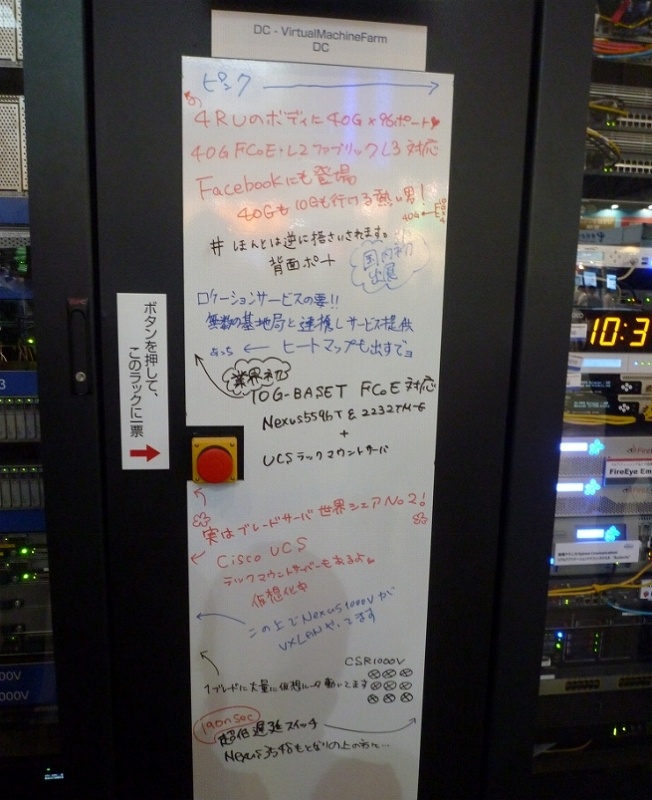 DC - VirtualMachineFarm
DC
ピンク
4RUのボディに40G×96ポート
40G FCoE・L2ファブリック L3 対応
Facebookにも登場
40Gも10Gも行ける熱い男!
40G
# ほんとは逆に搭さいされます。
背面ポート
国内初
出展
ロケーションサービスの要!!
無数の基地局と連携しサービス提供
あっち ← ヒートマップも出すでョ
業界初
10G-BASET FCoE 対応
Nexus5596T & 2232TM-E
+
UCSラックマウントサーバ
ボタンを押して、
このラックに一票
実はブレードサーバ世界シェアNo2!
Cisco UCS
ラックマウントサーバーもあるよ
仮想化中
この上でNexus1000Vが
VXLANやってます
CSR1000V
1ブレードに大量に仮想ルータ動いてます
190nsec
超低遅延スイッチ
Nexus3548もとなりの上の方に…
10:3
FireEye Em
000V
000V